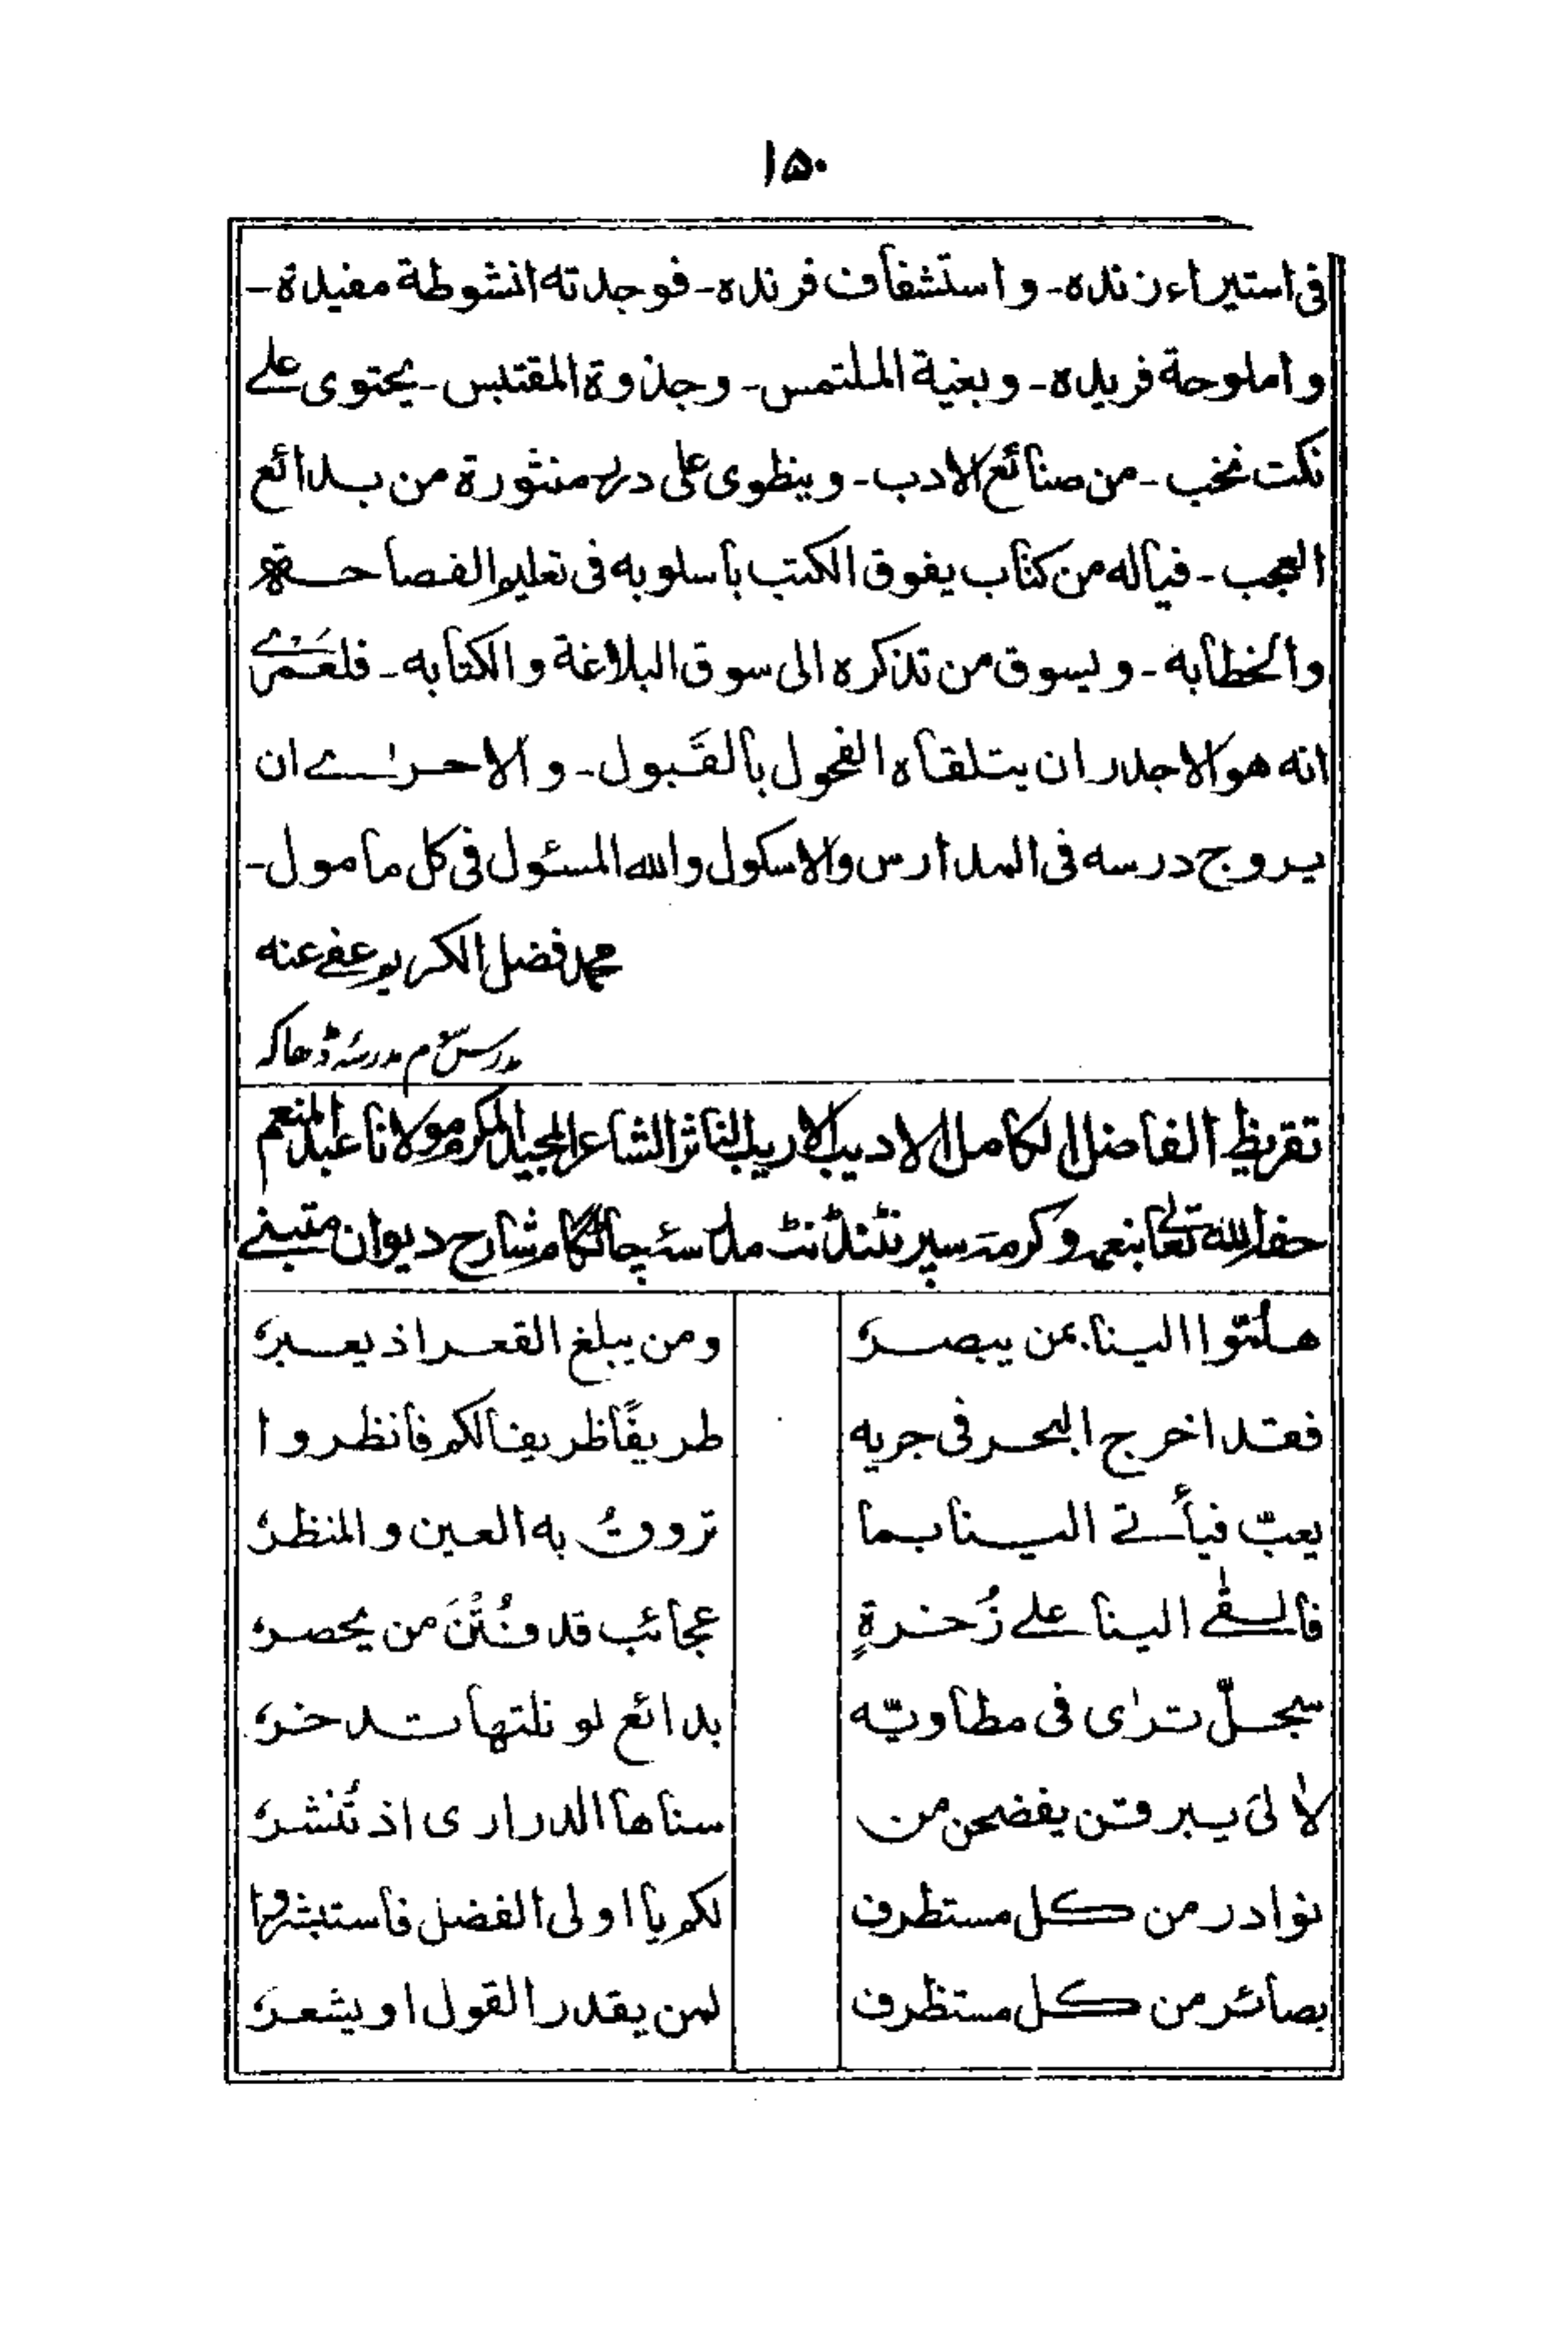 ۱۵۰
فی استیراء زنده۔ واستشفاف فرنده۔ فوجدته انشوطة مفیدة۔
واملوحة فریده۔ وبغیة الملتمس۔ وجذوة المقتبس۔ یحتوی علے
نکت نخب۔ من صنائع الادب۔ وینطوی علی درر منثورة من بدائع
العجب۔ فیاله من کتاب یفوق الکتب باسلوبه فی تعلیم الفصاحة
والخطابه۔ ویسوق من تذکره الی سوق البلاغة والکتابه۔ فلعَمْرے
انه هو الاجدر ان یتلقاه الفحول بالقَبول۔ والاحرٰے ان
یروج درسه فی المدارس والاسکول والله المسئول فی کل مامول۔
محمد فضل الکریم عفے عنه
مدرس مدرسۂ ڈھاکہ
تقریظ الفاضل الکامل الادیب الاریب الناثر الشاعر المجید المکرم مولانا عبد المنعم
حفظ الله تعالے بنعمه وکرمه سپرنٹنڈنٹ مدرسۂ چاٹگام شارح دیوان متنبے
هلمّوا الینا بمن یبصرُ ومن یبلغ القعر اذ یعبرُ
فقد اخرج البحر فی جریه طریفًا ظریفا لکم فانظروا
یعبّ فیأتے الینا بما تروقُ به العین والمنظرُ
فالقٰے الینا علے زُخرةٍ عجائب قد فُتْنَ من یحصرُ
سجلّ ترٰی فی مطاویّه بدائع لو نلتها تدخرُ
لاٰلیَ یبرقن یفضحن من سناها الدراری اذ تُنشرُ
نوادر من کل مستطرف لکم یا اولی الفضل فاستبشروا
بصائر من کل مستظرف لمن یقدر القول او یشعرُ